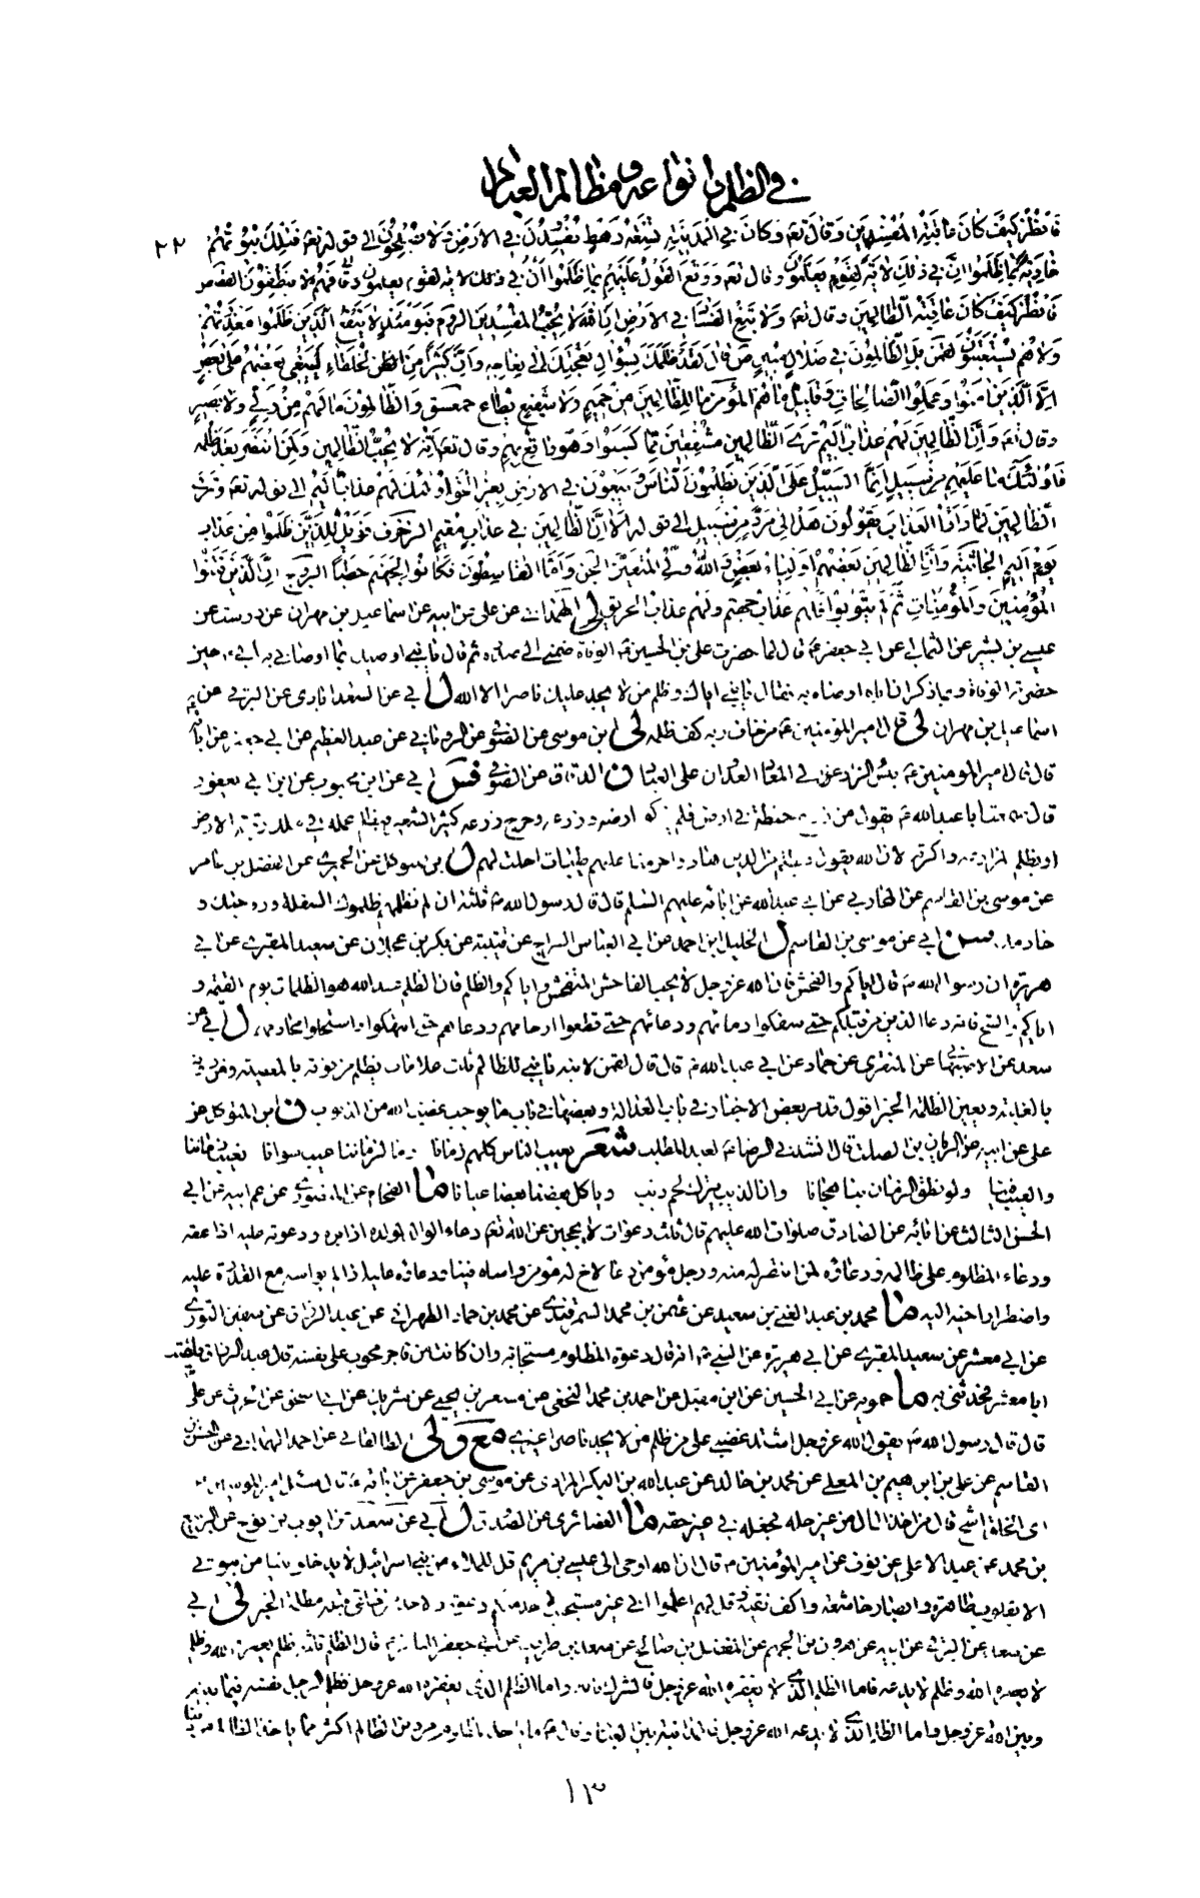 في الظلم وانواعه ومظالم العباد
٢٢ فانظر كيف كان عاقبة المفسدين وقال تعم وكان في المدينة تسعة رهط يفسدون في الارض ولا يصلحون الى قوله تعم فتلك بيوتهم
خاوية بما ظلموا ان في ذلك لاية لقوم يعلمون وقال تعم ووقع القول عليهم بما ظلموا فهم لا ينطقون القصص
فانظر كيف كان عاقبة الظالمين وقال تعم ولا تبغ الفساد في الارض ان الله لا يحب المفسدين الروم فيومئذ لا ينفع الذين ظلموا معذرتهم
ولا هم يستعتبون لقمن بل الظالمون في ضلال مبين ص قال لقد ظلمك بسؤال نعجتك الى نعاجه وان كثيرا من الخلطاء ليبغي بعضهم على بعض
الا الذين امنوا وعملوا الصالحات وقليل ما هم المؤمن ما للظالمين من حميم ولا شفيع يطاع حمعسق والظالمون ما لهم من ولي ولا نصير
وقال تعم وان الظالمين لهم عذاب اليم ترى الظالمين مشفقين مما كسبوا وهو واقع بهم وقال تعم انه لا يحب الظالمين ولمن انتصر بعد ظلمه
فاولئك ما عليهم من سبيل انما السبيل على الذين يظلمون الناس ويبغون في الارض بغير الحق اولئك لهم عذاب اليم الى قوله تعم وترى
الظالمين لما راوا العذاب يقولون هل الى مرد من سبيل الى قوله الا ان الظالمين في عذاب مقيم الزخرف فويل للذين ظلموا من عذاب
يوم اليم الجاثية وان الظالمين بعضهم اولياء بعض والله ولي المتقين الجن واما القاسطون فكانوا لجهنم حطبا البروج ان الذين فتنوا
المؤمنين والمؤمنات ثم لم يتوبوا فلهم عذاب جهنم ولهم عذاب الحريق لى الهمداني عن علي عن ابيه عن اسماعيل بن مهران عن درست عن
عيسى بن بشير عن الثمالي عن ابي جعفر ع قال لما حضرت علي بن الحسين ع الوفاة ضمني الى صدره ثم قال يا بني اوصيك بما اوصاني به ابي حين
حضرته الوفاة وبما ذكر ان اباه اوصاه به فقال يا بني اياك وظلم من لا يجد عليك ناصرا الا الله ل ابي عن السعدابادي عن البرقي عن
اسماعيل بن مهران لى قال امير المؤمنين ع من خاف ربه كف ظلمه لى ابن موسى عن الصوفي عن الروياني عن عبد العظيم عن ابي جعفر عن ابائه
قال قال امير المؤمنين ع بئس الزاد الى المعاد العدوان على العباد ن الدقاق عن الصوفي فس ابي عن ابن محبوب عن ابن ابي يعفور
قال سمعت ابا عبد الله ع يقول من زرع حنطة في ارض فلم يزك ارضه وزرعه وخرج زرعه كثير الشعير فبظلم عمله في ملك رقبة الارض
او بظلم لمزارعه واكرته لان الله يقول فبظلم من الذين هادوا حرمنا عليهم طيبات احلت لهم ل بن المتوكل عن الحميري عن الفضل بن عامر
عن موسى بن القاسم عن المحاربي عن ابي عبد الله عن ابائه عليهم السلم قال قال رسول الله ص ثلثة ان لم تظلمهم ظلموك السفلة وزوجتك و
خادمك سن ابي عن موسى بن القاسم ل الخليل ابن احمد عن ابي العباس السراج عن قتيبة عن بكر بن عجلان عن سعيد المقبري عن ابي
هريرة ان رسول الله ص قال اياكم والفحش فان الله عز وجل لا يحب الفاحش المتفحش واياكم والظلم فان الظلم عند الله هو الظلمات يوم القيمة و
اياكم والشح فانه دعا الذين من قبلكم حتى سفكوا دمائهم ودعاهم حتى قطعوا ارحامهم ودعاهم حتى انتهكوا واستحلوا محارمهم ل ابي عن
سعد عن الاصبهاني عن المنقري عن حماد عن ابي عبد الله ع قال قال لقمن لابنه يا بني للظالم ثلث علامات يظلم من فوقه بالمعصية ومن دونه
بالغلبة ويعين الظلمة الخبر اقول قد مر بعض الاخبار في باب العدالة وبعضها في باب ما يوجب غضب الله من الذنوب ن ابن المتوكل عن
علي عن ابيه عن الريان بن الصلت قال انشدني الرضا ع لعبد المطلب شعر يعيب الناس كلهم زمانا وما لزماننا عيب سوانا نعيب زماننا
والعيب فينا ولو نطق الزمان بنا هجانا وان الذئب يترك لحم ذئب وياكل بعضنا بعضا عيانا ما الفحام عن المنصوري عن عم ابيه عن ابي
الحسن الثالث عن ابائه عن الصادق صلوات الله عليهم قال ثلث دعوات لا يحجبن عن الله تعم دعاء الوالد لولده اذا بره ودعوته عليه اذا عقه
ودعاء المظلوم على ظالمه ودعائه لمن انتصر له منه ورجل مؤمن دعا لاخ له مؤمن واساه فينا ودعاؤه عليه اذا لم يواسه مع القدرة عليه
واضطرار اخيه اليه ما محمد بن عبد الغني بن سعيد عن عثمن بن محمد السمرقندي عن محمد بن حماد الطهراني عن عبد الرزاق عن سفين الثوري
عن ابي معشر عن سعيد المقبري عن ابي هريرة عن النبي ص انه قال دعوة المظلوم مستجابة وان كانت من فاجر محوب على نفسه قال عبد الرزاق فلقيت
ابا معشر فحدثني به ما حمويه عن ابي الحسين عن ابن مقبل عن احمد بن محمد النخعي عن مسعر بن يحيى عن شريك عن ابي اسحق عن الحرث عن علي
قال قال رسول الله ص يقول الله عز وجل اشتد غضبي على من ظلم من لا يجد ناصرا غيري مع ولى الطالقاني عن احمد الهمداني عن الحسن بن
القاسم عن علي بن ابرهيم بن المعلى عن محمد بن خالد عن عبد الله بن البكر المرادي عن موسى بن جعفر عن ابائه ع قال سئل امير المؤمنين
اي الخلق اشح قال من اخذ المال من غير حله فجعله في غير حقه ما الغضائري عن الصدوق ل ابي عن سعد عن ايوب بن نوح عن الربيع
بن محمد عن عبد الاعلى عن نوف عن امير المؤمنين ع قال ان الله اوحى الى عيسى بن مريم قل للملاء من بني اسرائيل لا يدخلوا بيتا من بيوتي
الا بقلوب طاهرة وابصار خاشعة واكف نقية وقل لهم اعلموا اني غير مستجيب لاحد منكم دعوة ولاحد من خلقي قبله مظلمة الخبر لى ابي
عن سعد عن البرقي عن ابيه عن هرون بن الجهم عن المفضل بن صالح عن سعد بن طريف عن ابي جعفر الباقر ع قال الظلم ثلثة ظلم يغفره الله وظلم
لا يغفره الله وظلم لا يدعه فاما الظلم الذي لا يغفره الله عز وجل فالشرك بالله واما الظلم الذي يغفره الله عز وجل فظلم الرجل نفسه فيما بينه
وبين الله عز وجل واما الظلم الذي لا يدعه الله عز وجل فالمداينة بين العباد وقال ع ما ياخذ المظلوم من دين الظالم اكثر مما ياخذ الظالم من دنيا
١٣